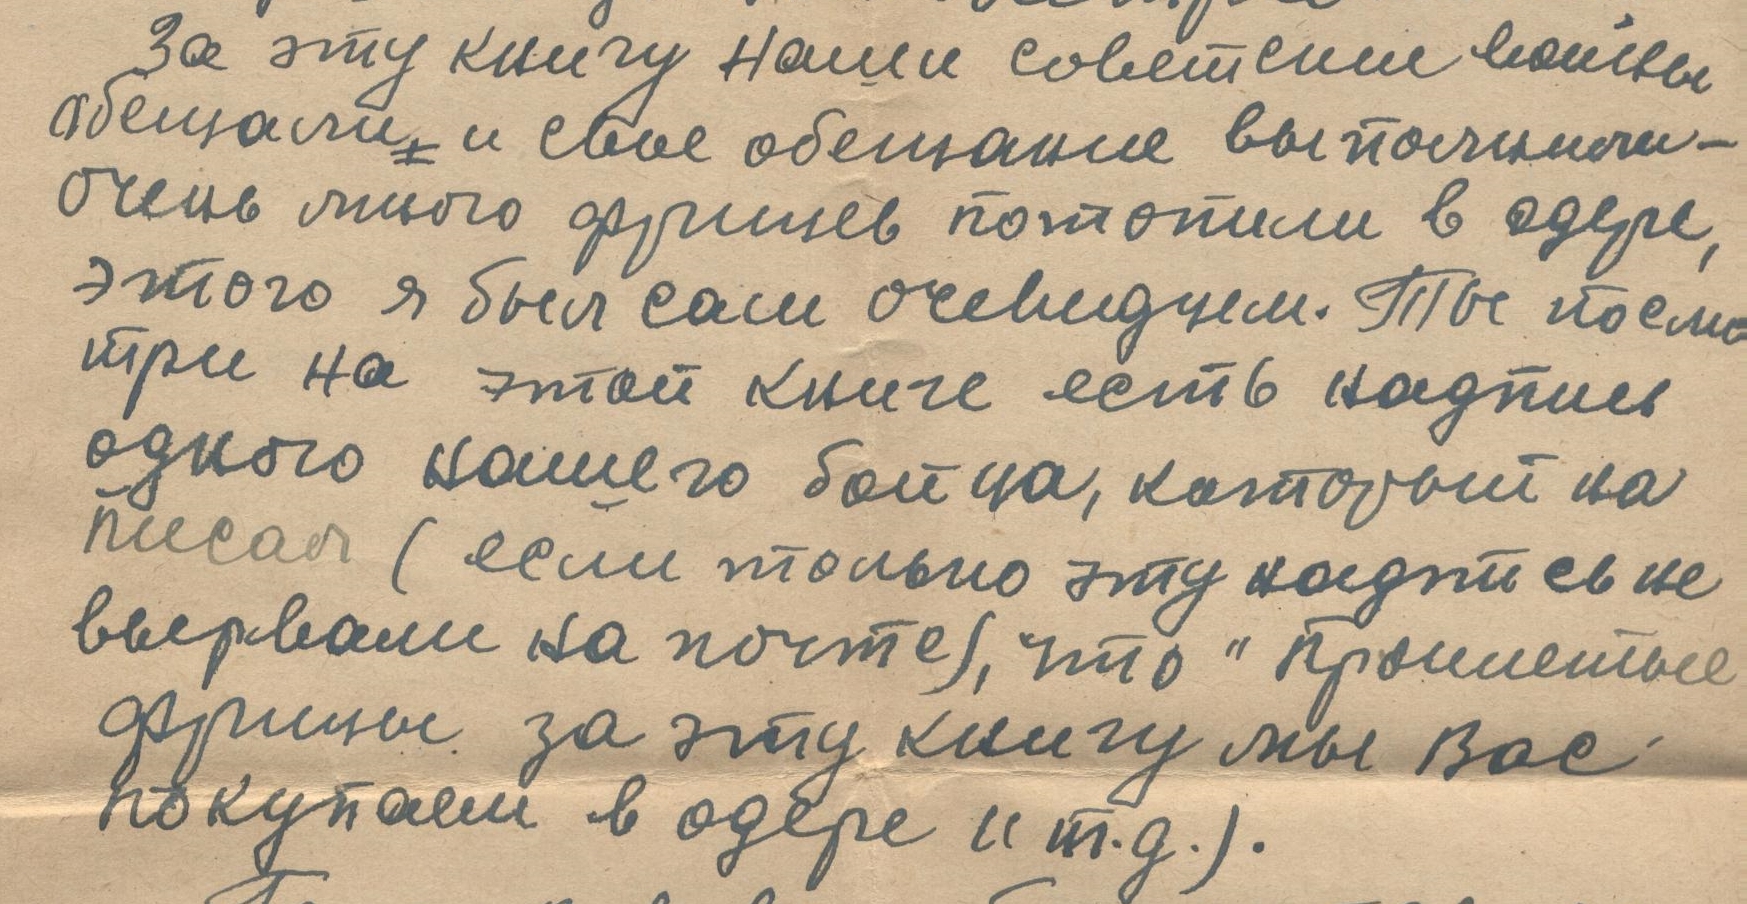 За эту книгу наши советские войны
обещали, и свое обещание выполнили –
очень много фрицев потопили в одере,
этого я был сам очевидцем. Ты посмо
три на этой книге есть надпись
одного нашего бойца, который на
писал (если только эту надпись не
вырвали на почте), что "Проклетые
фрицы за эту книгу мы Вас
покупаем в одере и т.д.).